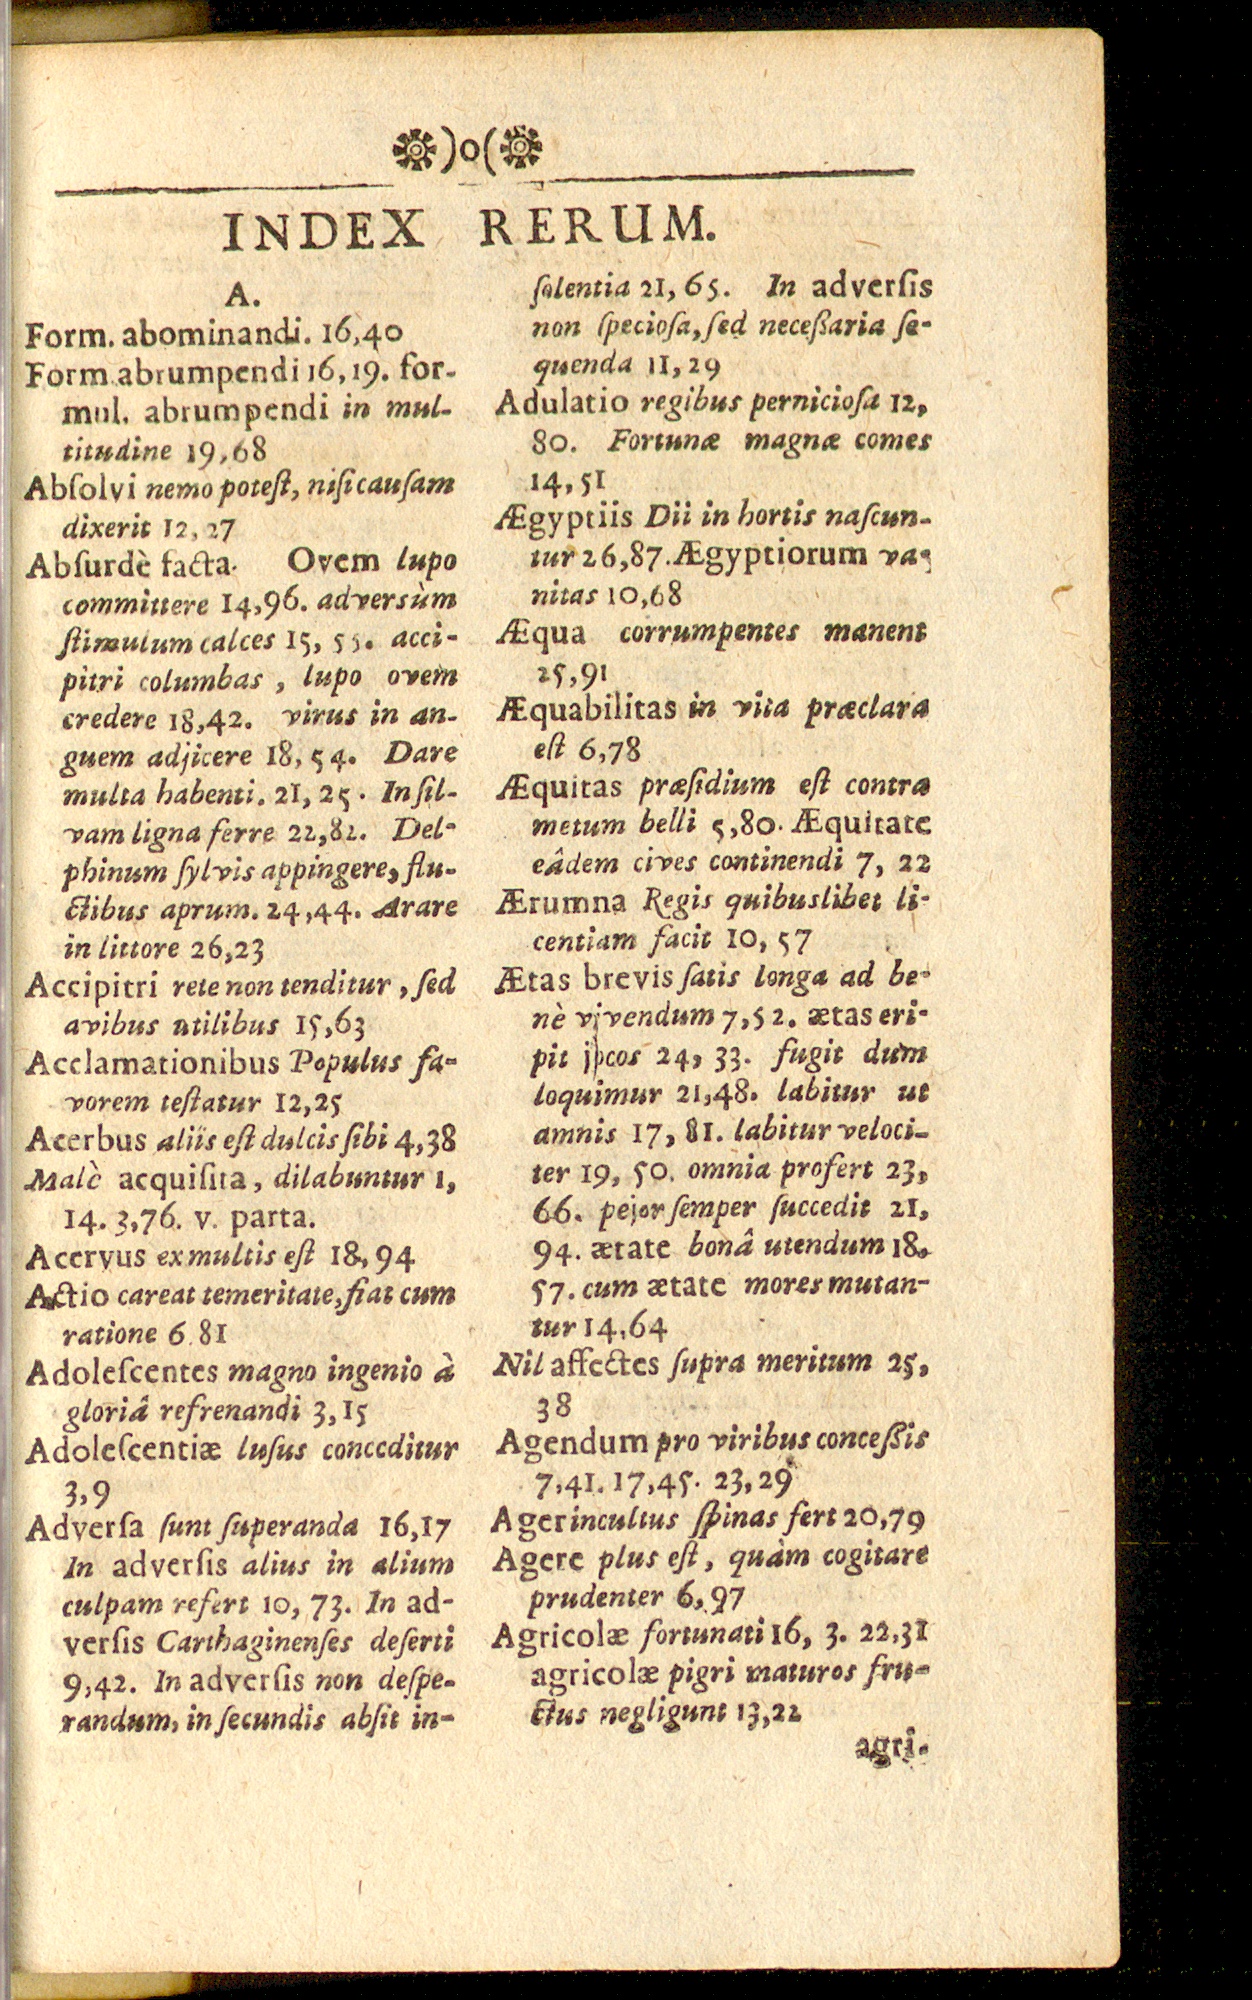 )o(
INDEX RERUM.
A.
Form. abominandi. 16,40
Form. abrumpendi 16,19. for-
mul. abrumpendi in mul-
titudine 19,68
Abſolvi nemo poteſt, niſi cauſam
dixerit 12,27
Abſurdè facta. Ovem lupo
committere 14,96. adversùm
ſtimulum calces 15, 55. acci-
pitri columbas, lupo ovem
credere 18,42. virus in an-
guem adjicere 18, 54. Dare
multa habenti. 21, 25. In ſil-
vam ligna ferre 22,82. Del-
phinum ſylvis appingere, flu-
ctibus aprum. 24,44. Arare
in littore 26,23
Accipitri rete non tenditur, ſed
avibus utilibus 15,63
Acclamationibus Populus fa-
vorem teſtatur 12,25
Acerbus aliis eſt dulcis ſibi 4,38
Malè acquiſita, dilabuntur 1,
14. 3,76. v. parta.
Acervus ex multis eſt 18,94
Actio careat temeritate, fiat cum
ratione 6 81
Adoleſcentes magno ingenio à
gloriâ refrenandi 3,15
Adoleſcentiæ luſus conceditur
3,9
Adverſa ſunt ſuperanda 16,17
In adverſis alius in alium
culpam refert 10, 73. In ad-
verſis Carthaginenſes deſerti
9,42. In adverſis non deſpe-
randum, in ſecundis abſit in-
ſolentia 21, 65. In adverſis
non ſpecioſa, ſed neceßaria ſe-
quenda 11,29
Adulatio regibus pernicioſa 12,
80. Fortunæ magnæ comes
14,51
Ægyptiis Dii in hortis naſcun-
tur 26,87. Ægyptiorum va-
nitas 10,68
Æqua corrumpentes manent
25,91
Æquabilitas in vita præclara
eſt 6,78
Æquitas præſidium eſt contra
metum belli 5,80. Æquitate
eâdem cives continendi 7, 22
Ærumna Regis quibuslibet li-
centiam facit 10, 57
Ætas brevis ſatis longa ad be-
nè vivendum 7,52. ætas eri-
pit jocos 24, 33. fugit dum
loquimur 21,48. labitur ut
amnis 17, 81. labitur veloci-
ter 19, 50. omnia profert 23,
66. pejor ſemper ſuccedit 21,
94. ætate bonâ utendum 18.
57. cum ætate mores mutan-
tur 14,64
Nil affectes ſupra meritum 25,
38
Agendum pro viribus conceßis
7,41. 17,45. 23,29
Ager incultus ſpinas fert 20,79
Agere plus eſt, quàm cogitare
prudenter 6,97
Agricolæ fortunati 16, 3. 22,31
agricolæ pigri maturos fru-
ctus negligunt 13,22
agri-